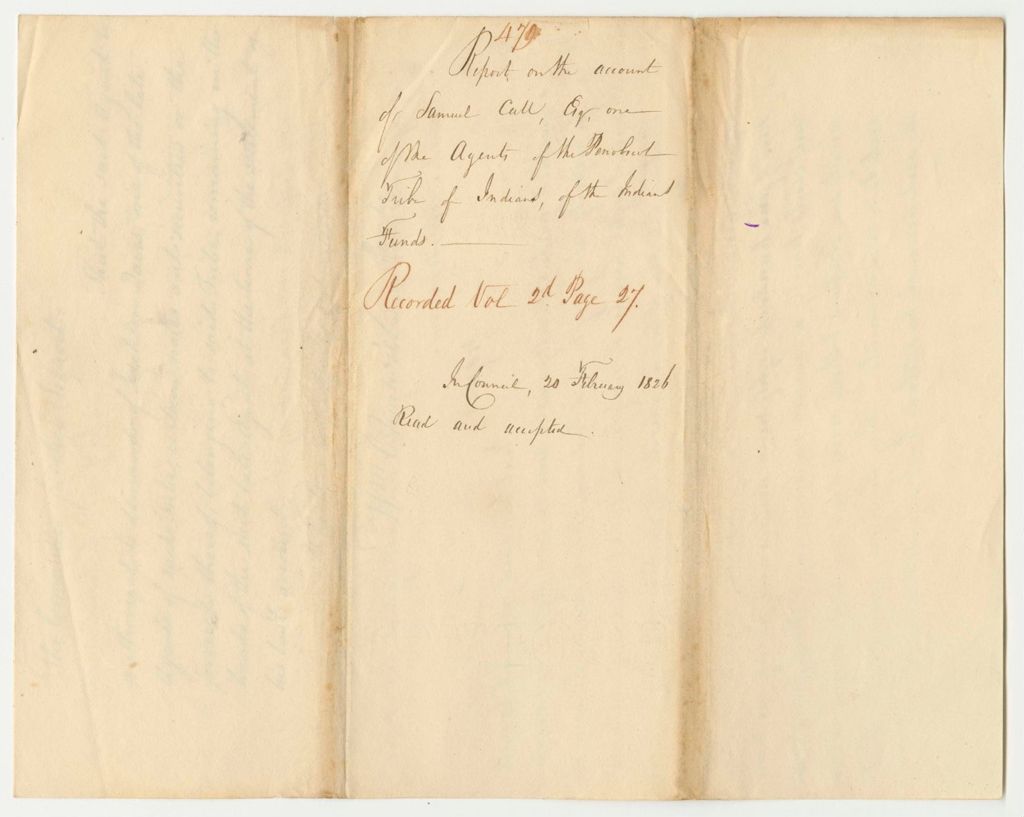 479
Report on the account
of Samuel Call, Esq, one
of the Agents of the Penobscot
Tribe of Indians, of the Indian
Funds.
Recorded Vol 2d Page 27.
In Council, 20 February 1826
Read and accepted.